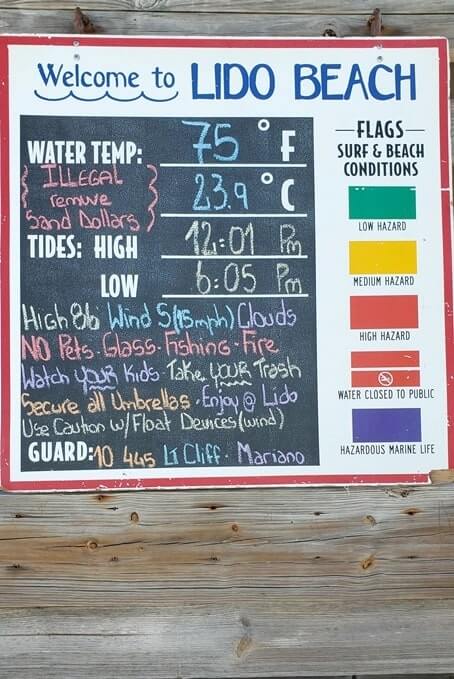 Welcome to LIDO BEACH
WATER TEMP: 75 °F
23.9 °C
{ ILLEGAL
remove
Sand Dollars }
TIDES: HIGH 12:01 Pm
LOW 6:05 Pm
High 86 Wind S (15mph) Clouds
NO Pets · Glass · Fishing · Fire
Watch YOUR Kids · Take YOUR Trash
Secure all Umbrellas · Enjoy @ Lido
Use Caution w/ Float Devices (wind)
GUARD: 10 445 Lt Cliff · Mariano
FLAGS
SURF & BEACH
CONDITIONS
LOW HAZARD
MEDIUM HAZARD
HIGH HAZARD
WATER CLOSED TO PUBLIC
HAZARDOUS MARINE LIFE